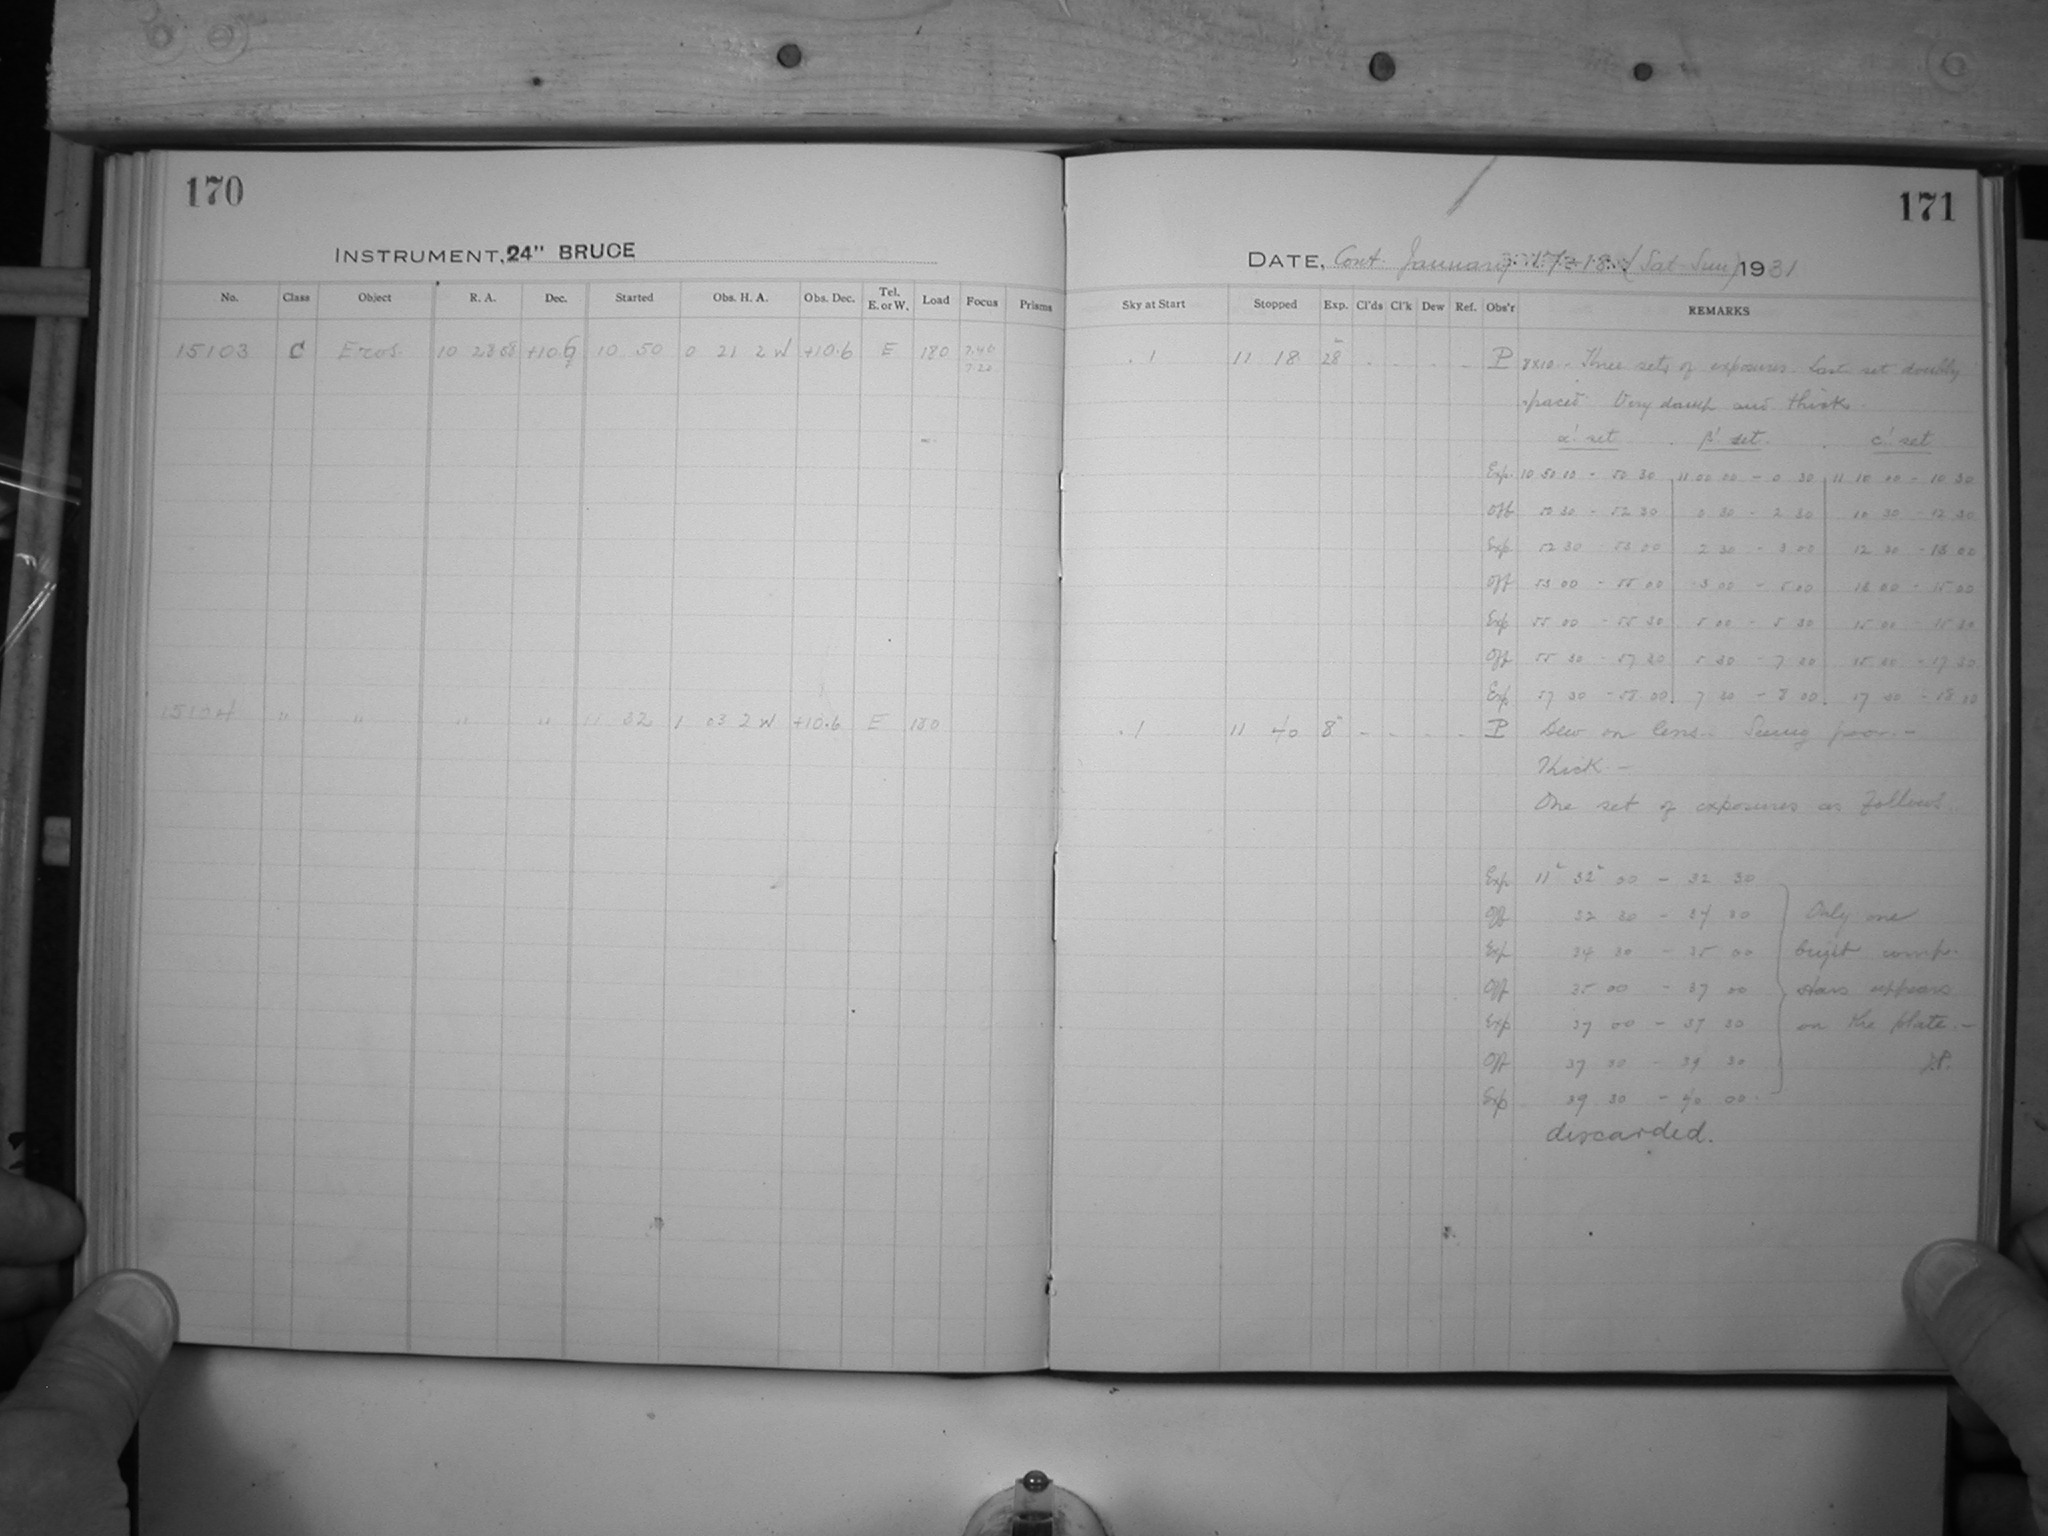 170
INSTRUMENT, 24" BRUCE
No. Class Object R. A. Dec. Started Obs. H. A. Obs. Dec. Tel. E. or W. Load Focus Prisms
15103 C Eros 10 28 08 +10.6 10 50 0 21 2 W +10.6 E 180 7.40
7 20
15104 " " " " 11 32 1 03 2 W +10.6 E 180
171
DATE, Cont. January 17-18 (Sat-Sun) 1931
Sky at Start Stopped Exp. Cl'ds Cl'k Dew Ref. Obs'r REMARKS
.1 11 18 28 P 8x10 - Three sets of exposures. Last set doubly
spaced. Very damp and thick.
a' set b' set c' set
Exp. 10 50 10 - 50 30 11 00 00 - 0 30 11 10 00 - 10 30
Off 50 30 - 52 30 0 30 - 2 30 10 30 - 12 30
Exp 52 30 - 53 00 2 30 - 3 00 12 30 - 13 00
Off 53 00 - 55 00 3 00 - 5 00 13 00 - 15 00
Exp 55 00 - 55 30 5 00 - 5 30 15 00 - 15 30
Off 55 30 - 57 30 5 30 - 7 30 15 30 - 17 30
Exp 57 30 - 58 00 7 30 - 8 00 17 30 - 18 10
.1 11 40 8 P Dew on lens. Seeing poor. -
Thick -
One set of exposures as follows
Exp 11 32 00 - 32 30
Off 32 30 - 34 30 Only one
Exp 34 30 - 35 00 bright comp.
Off 35 00 - 37 00 stars appears
Exp 37 00 - 37 30 on the plate. -
Off 37 30 - 39 30 J.P.
Exp 39 30 - 40 00
discarded.